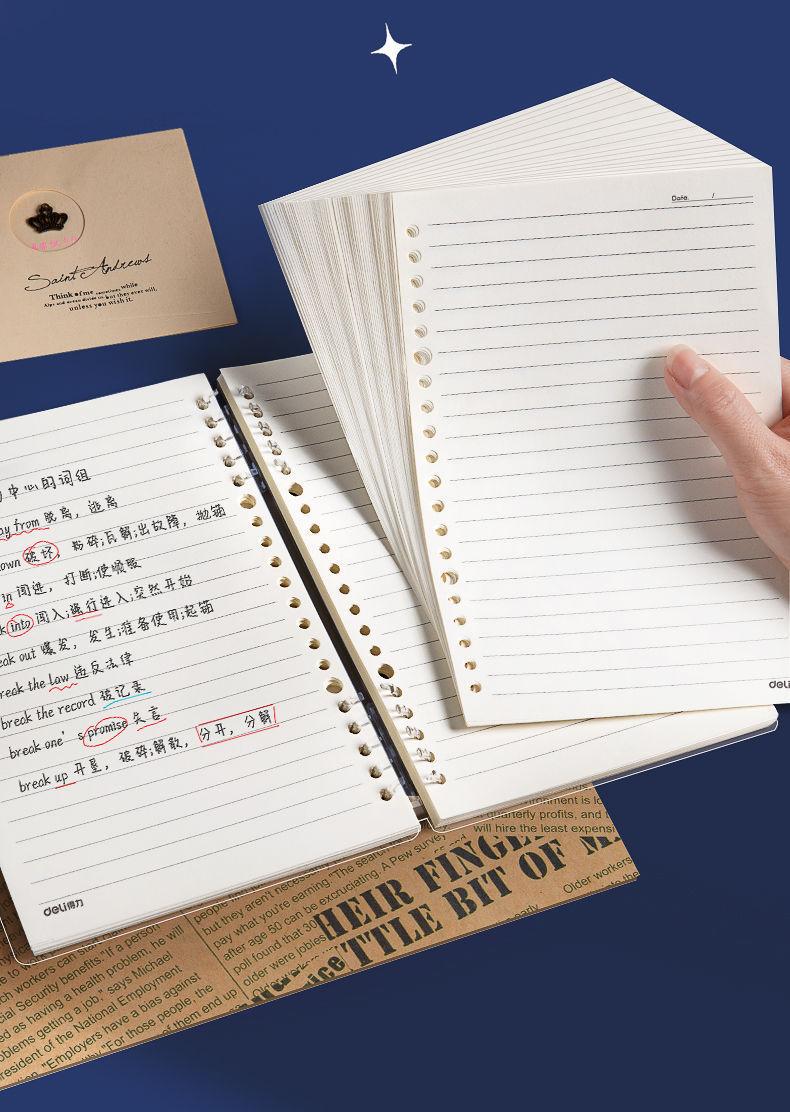 Saint Andrews
Think of me sometimes while
Alps and ocean divide us. but they ever will,
unless you wish it.
Date. /
中心的词组
ay from 脱离，逃离
own 破坏，粉碎;瓦解;出故障，抛锚
in 闯进，打断;使顺服
k into 闯入;强行进入;突然开始
eak out 爆发，发生;准备使用;起锚
reak the law 违反法律
break the record 破记录
break one's promise 失言
break up 开垦，破碎;解散，分开，分解
deli得力
deli
vironment is lo
quarterly profits, and t
will hire the least expensi
people
but they aren't necess
pay what you're earning. "The search
after age 50 can be excruciating. A Pew survey
poll found that 30
older were jobles
HEIR FINGE
TTLE BIT OF M
Older workers
to the
early
ch workers can start
cial Security benefits. "If a person
ed as having a health problem, he will
oblems getting a job," says Michael
resident of the National Employment
tion. "Employers have a bias against
why. "For those people, the
of them end up